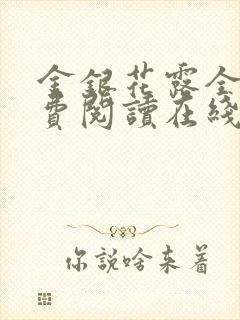 金銀花露全
費閱讀在綫
你說啥來着